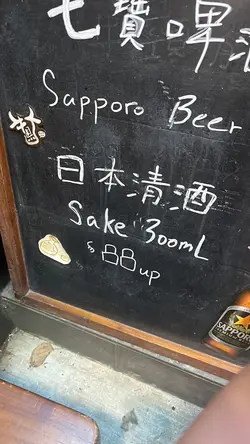 七寶啤酒
Sapporo Beer
日本清酒
Sake 300mL
$ 88 up
SAPPORO